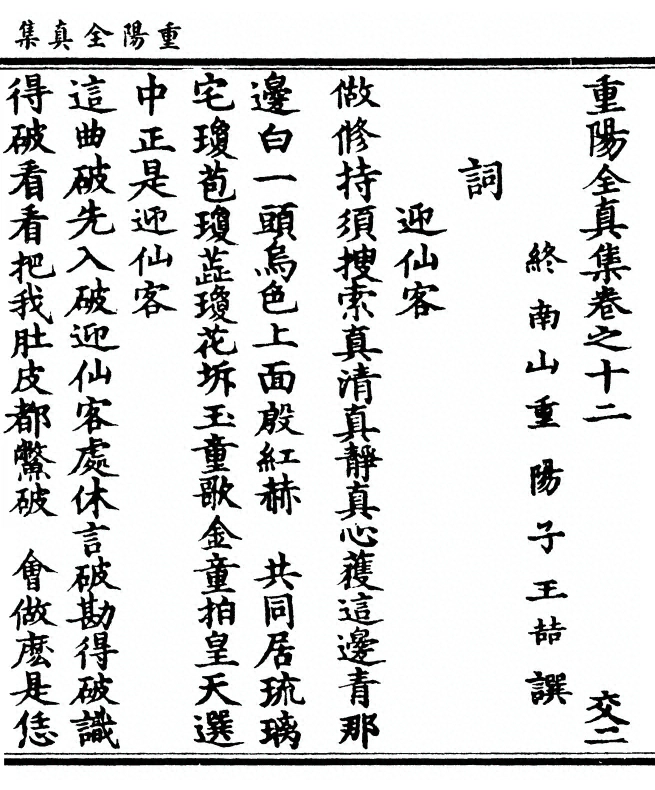 重陽全真集
重陽全真集卷之十二 交二
終南山重陽子王嚞撰
詞
迎仙客
做修持須搜索真清真靜真心獲這邊青那
邊白一頭烏色上面殷紅赫 共同居琉璃
宅瓊苞瓊蕋瓊花坼玉童歌金童拍皇天選
中正是迎仙客
這曲破先入破迎仙客處休言破勘得破識
得破看看把我肚皮都鱉破 會做麽是恁